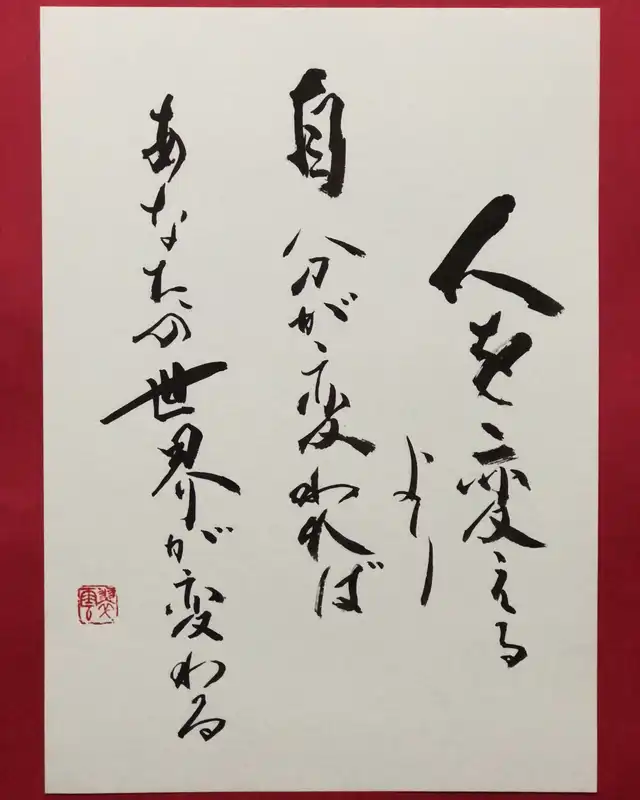 人を変える
より
自分が変われば
あなたの世界が変わる